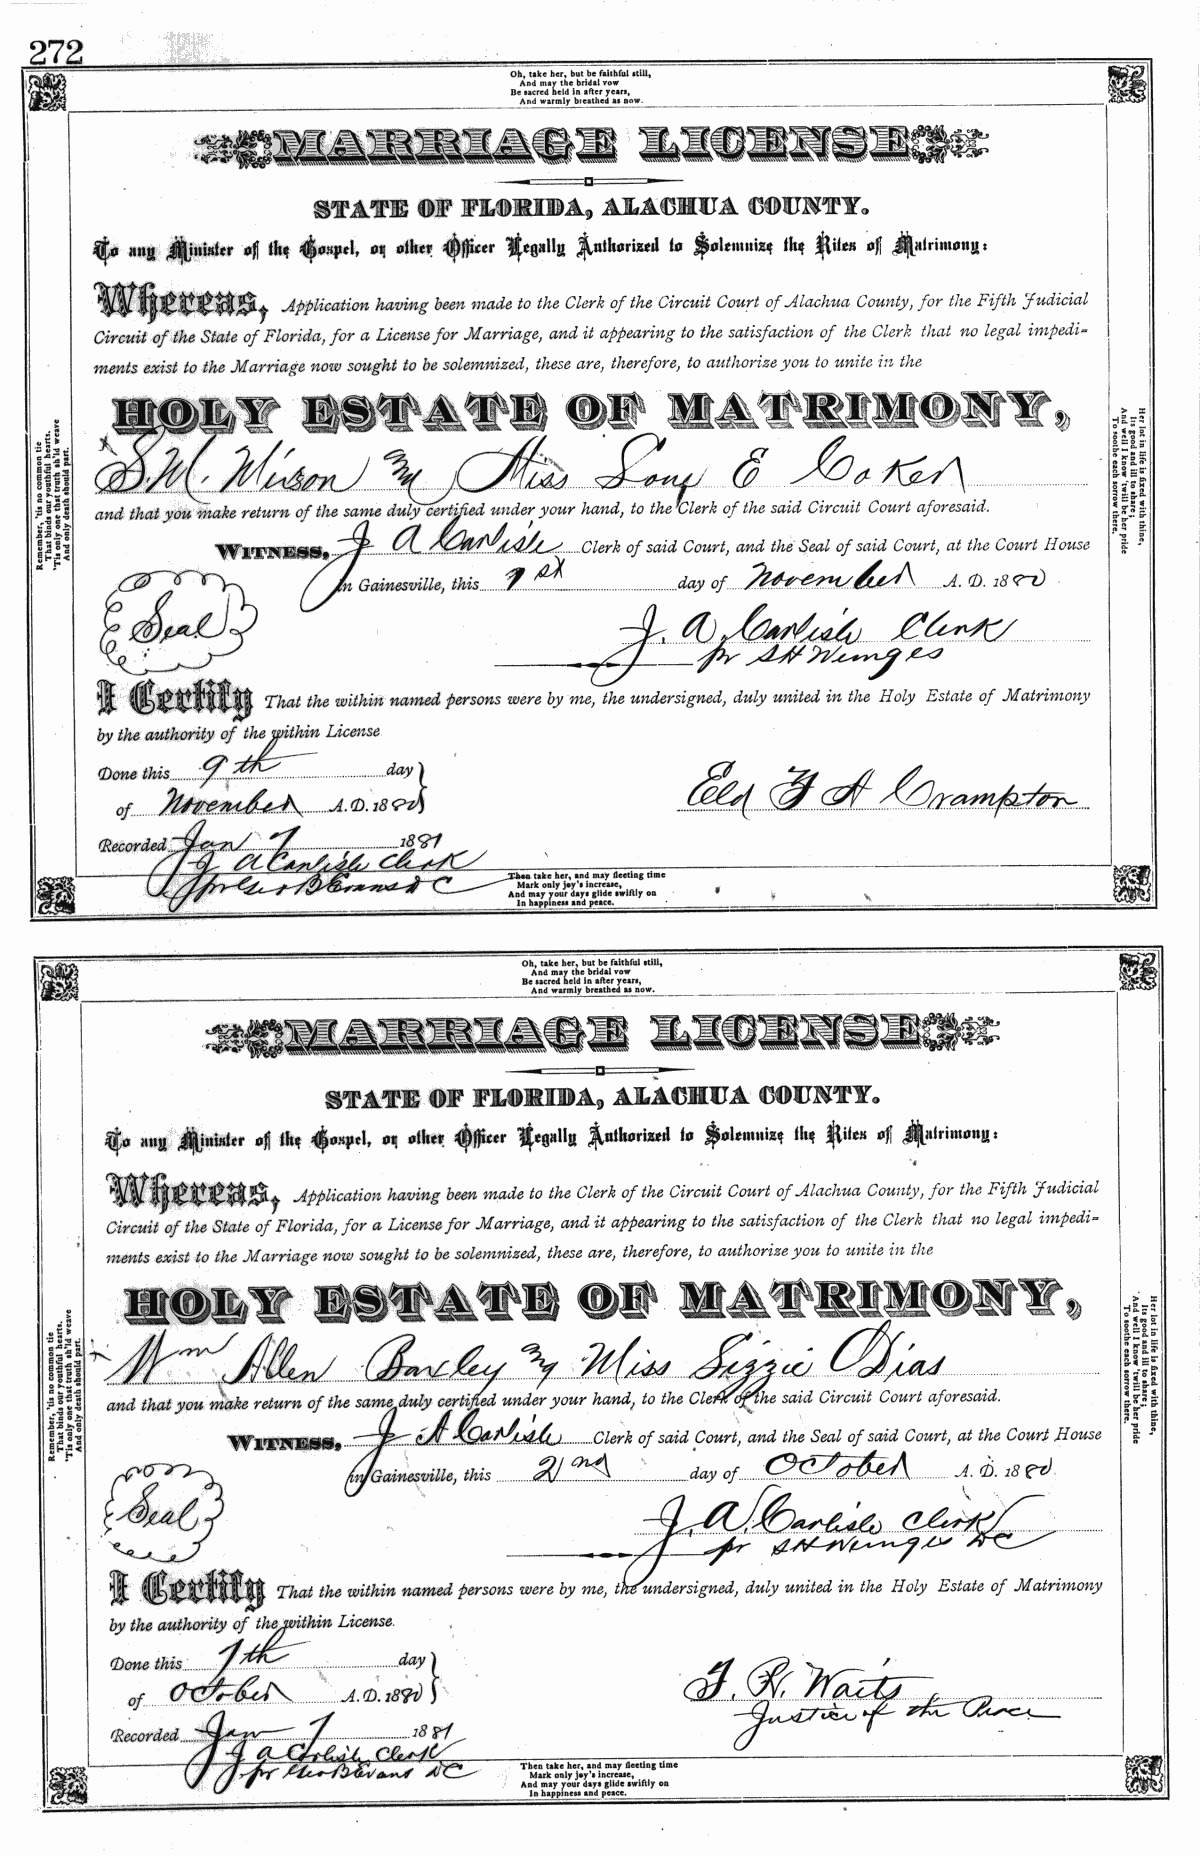 272
Oh, take her, but be faithful still,
And may the bridal vow
Be sacred held in after years,
And warmly breathed as now.
MARRIAGE LICENSE
STATE OF FLORIDA, ALACHUA COUNTY.
To any Minister of the Gospel, or other Officer Legally Authorized to Solemnize the Rites of Matrimony:
Whereas, Application having been made to the Clerk of the Circuit Court of Alachua County, for the Fifth Judicial
Circuit of the State of Florida, for a License for Marriage, and it appearing to the satisfaction of the Clerk that no legal impedi-
ments exist to the Marriage now sought to be solemnized, these are, therefore, to authorize you to unite in the
HOLY ESTATE OF MATRIMONY,
S. M. Wixson and Miss E Coker
and that you make return of the same duly certified under your hand, to the Clerk of the said Circuit Court aforesaid.
WITNESS, J A Carlisle Clerk of said Court, and the Seal of said Court, at the Court House
in Gainesville, this 1st day of November A. D. 1880
Seal
J. A. Carlisle Clerk
pr S H Wemges
I Certify That the within named persons were by me, the undersigned, duly united in the Holy Estate of Matrimony
by the authority of the within License
Done this 9th day
of November A.D. 1880
Eld F A Crampton
Recorded Jan 7 1881
J A Carlisle Clerk
pr Geo B Evans DC
Then take her, and may fleeting time
Mark only joy's increase,
And may your days glide swiftly on
In happiness and peace.
Remember, 'tis no common tie
That binds our youthful hearts.
'Tis only one that truth sh'ld weave
And only death should part.
Her lot in life is fixed with thine,
Its good and ill to share;
And well I know 'twill be her pride
To soothe each sorrow there.
Oh, take her, but be faithful still,
And may the bridal vow
Be sacred held in after years,
And warmly breathed as now.
MARRIAGE LICENSE
STATE OF FLORIDA, ALACHUA COUNTY.
To any Minister of the Gospel, or other Officer Legally Authorized to Solemnize the Rites of Matrimony:
Whereas, Application having been made to the Clerk of the Circuit Court of Alachua County, for the Fifth Judicial
Circuit of the State of Florida, for a License for Marriage, and it appearing to the satisfaction of the Clerk that no legal impedi-
ments exist to the Marriage now sought to be solemnized, these are, therefore, to authorize you to unite in the
HOLY ESTATE OF MATRIMONY,
Wm Allen Baxley and Miss Lizzie O Dias
and that you make return of the same duly certified under your hand, to the Clerk of the said Circuit Court aforesaid.
WITNESS, J A Carlisle Clerk of said Court, and the Seal of said Court, at the Court House
in Gainesville, this 2nd day of October A. D. 1880
Seal
J. A. Carlisle Clerk
pr S H Wemges DC
I Certify That the within named persons were by me, the undersigned, duly united in the Holy Estate of Matrimony
by the authority of the within License.
Done this 7th day
of October A.D. 1880
F. R. Waits
Justice of the Peace
Recorded Jan 7 1881
J A Carlisle Clerk
pr Geo B Evans DC
Then take her, and may fleeting time
Mark only joy's increase,
And may your days glide swiftly on
In happiness and peace.
Remember, 'tis no common tie
That binds our youthful hearts.
'Tis only one that truth sh'ld weave
And only death should part.
Her lot in life is fixed with thine,
Its good and ill to share;
And well I know 'twill be her pride
To soothe each sorrow there.